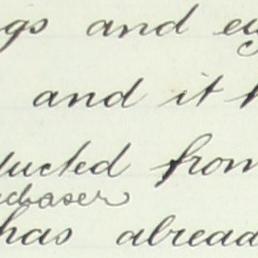 gs and eg
and it
ducted from
chaser
has alread